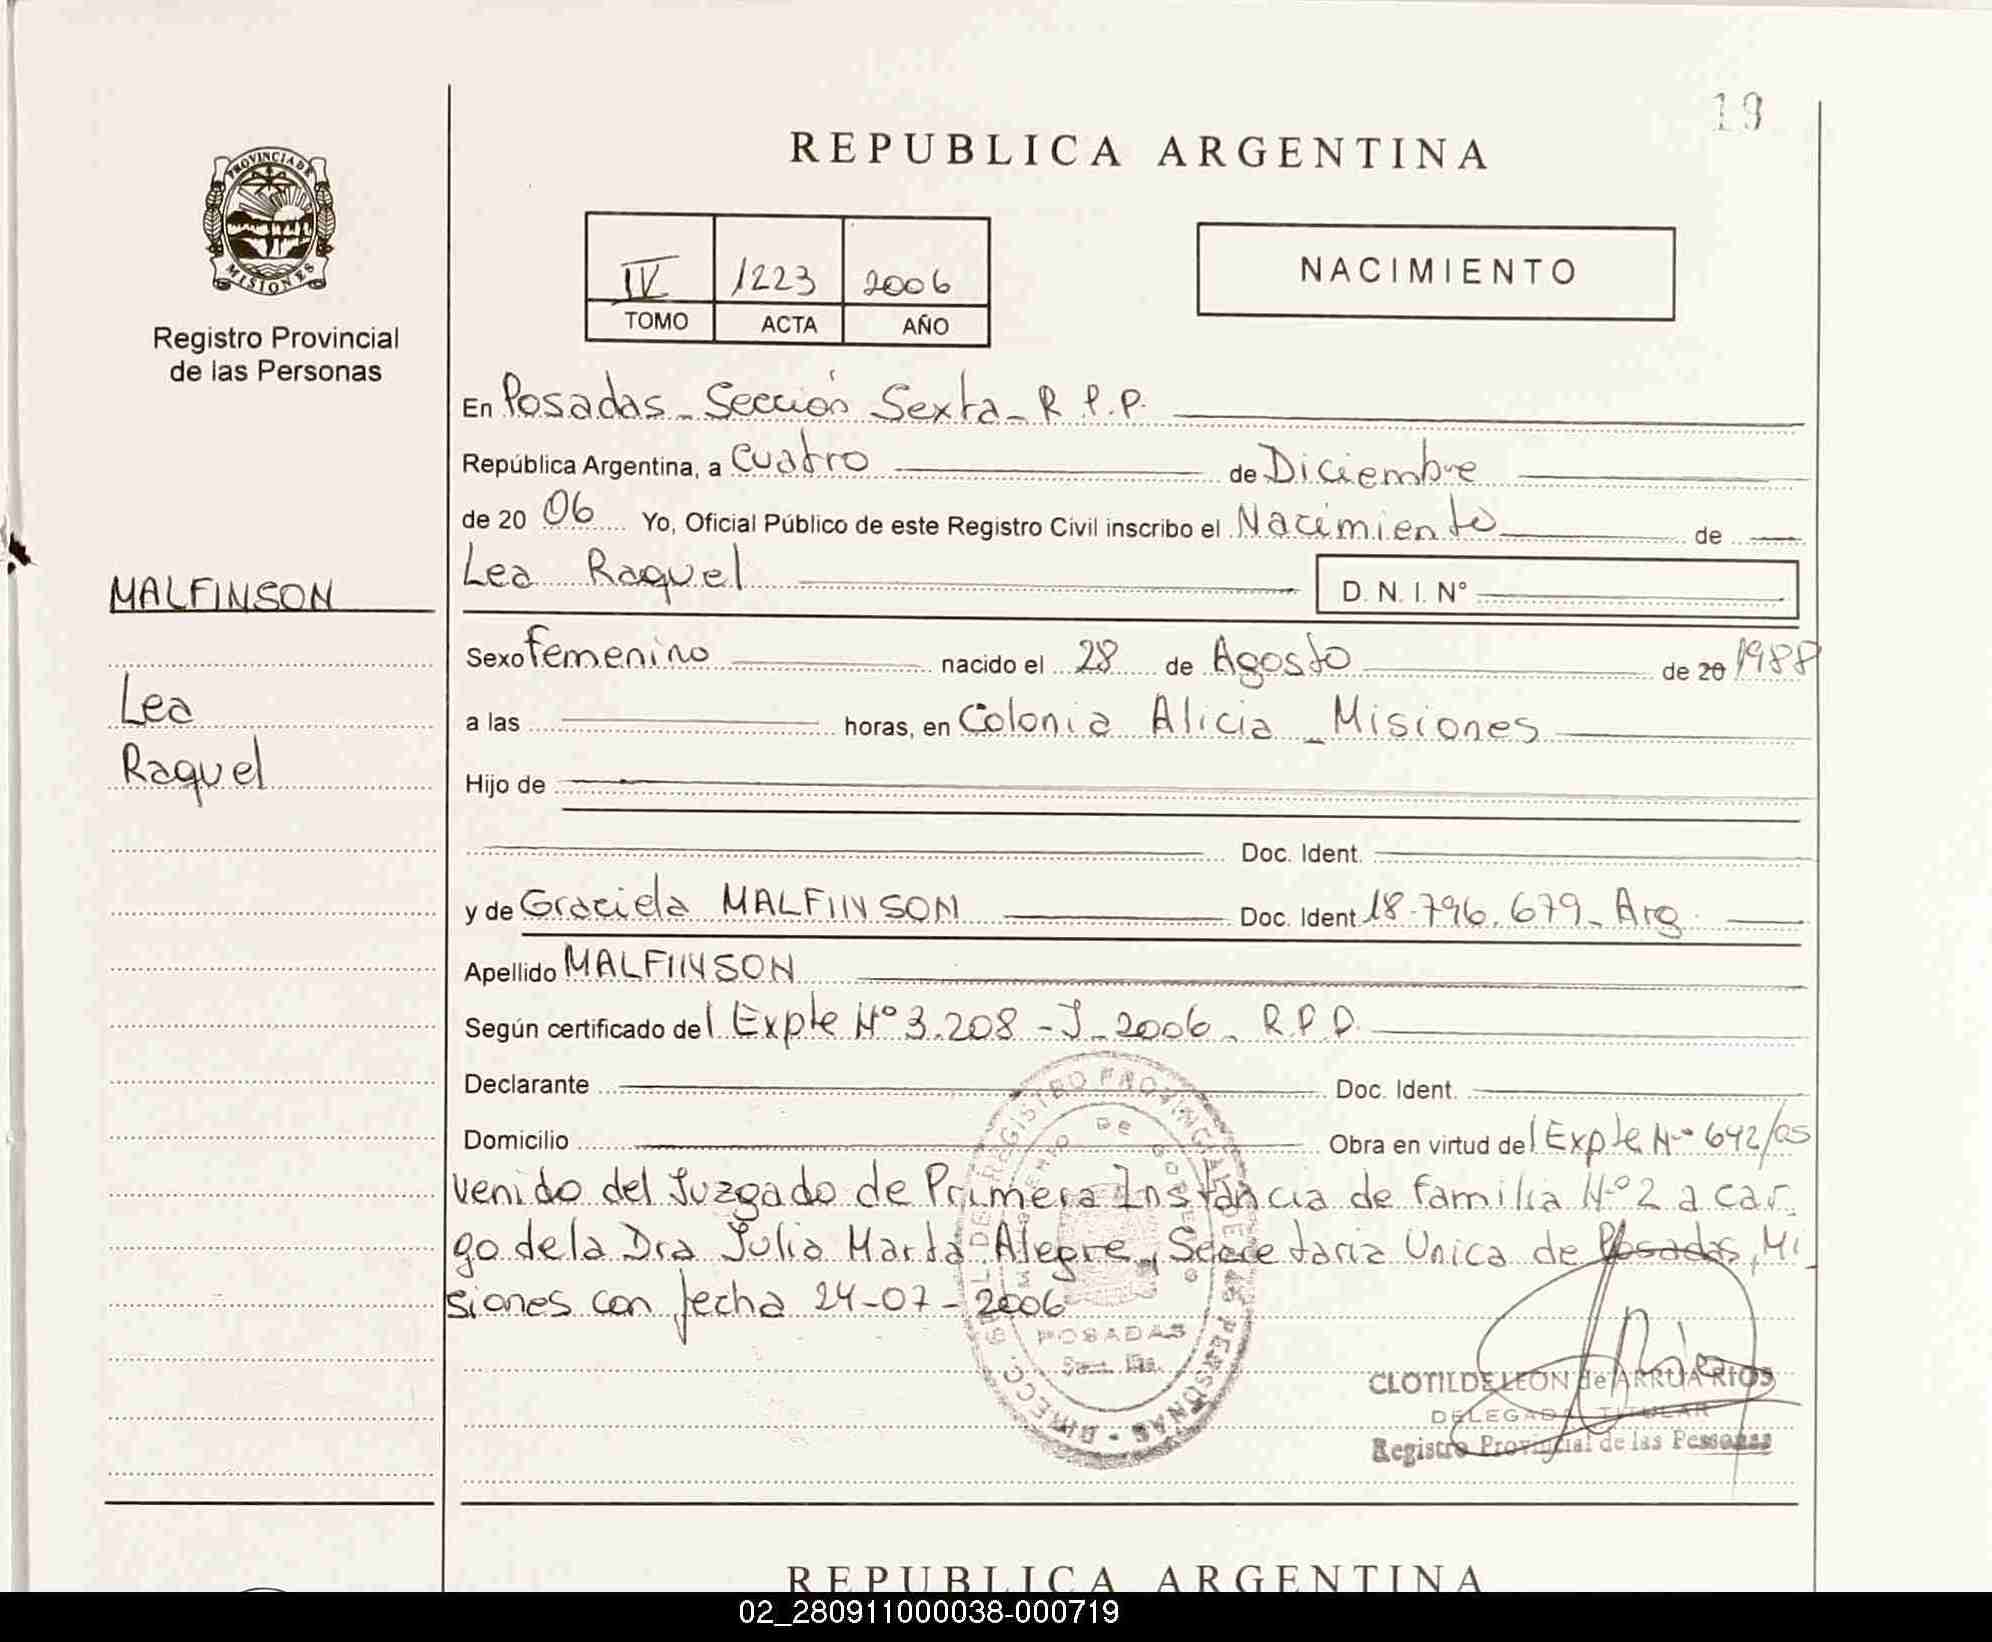 19
REPUBLICA ARGENTINA
PROVINCIA DE
MISIONES
Registro Provincial
de las Personas
IV 1223 2006
TOMO ACTA AÑO
NACIMIENTO
En Posadas - Sección Sexta - R.P.P.
República Argentina, a Cuatro de Diciembre
de 20 06 Yo, Oficial Público de este Registro Civil inscribo el Nacimiento de
Lea Raquel D. N. I. N°
MALFINSON
Lea
Raquel
Sexo Femenino nacido el 28 de Agosto de 20 1988
a las horas, en Colonia Alicia - Misiones
Hijo de
Doc. Ident.
y de Graciela MALFINSON Doc. Ident. 18.796.679 - Arg.
Apellido MALFINSON
Según certificado del Expte N° 3.208 - J - 2006 - R.P.P.
Declarante Doc. Ident.
Domicilio Obra en virtud del Expte N° 642/05
venido del Juzgado de Primera Instancia de Familia N° 2 a car-
go de la Dra Julia Marta Alegre, Secretaria Unica de Posadas, Mi
siones con fecha 24-07-2006
DIRECC. GRAL DEL REGISTRO PROVINCIAL DE LAS PERSONAS
DE GOBIERNO
POSADAS
CLOTILDE LEON de ARRUA RIOS
DELEGADA TITULAR
Registro Provincial de las Personas
REPUBLICA ARGENTINA
02_280911000038-000719